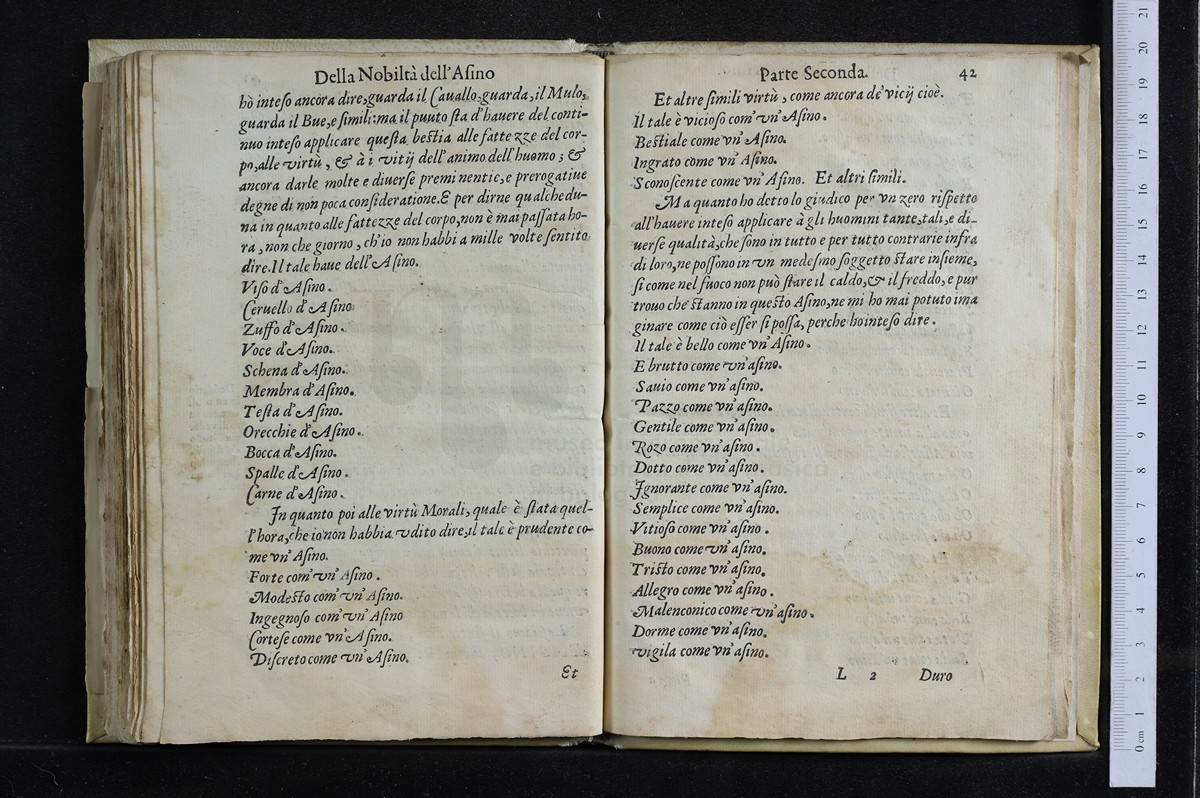 Della Nobiltà dell'Asino
hò inteso ancora dire, guarda il Cauallo, guarda, il Mulo,
guarda il Bue, e simili: ma il puuto sta d'hauere del conti-
nuo inteso applicare questa bestia alle fattezze del cor-
po, alle virtù, & à i vitij dell'animo dell'huomo; &
ancora darle molte e diuerse preminentie, e prerogatiue
degne di non poca consideratione. E per dirne qualchedu-
na in quanto alle fattezze del corpo, non è mai passata ho-
ra, non che giorno, ch'io non habbi a mille volte sentito
dire. Il tale haue dell'Asino.
Viso d'Asino.
Ceruello d'Asino
Zuffo d'Asino.
Voce d'Asino.
Schena d'Asino.
Membra d'Asino.
Testa d'Asino.
Orecchie d'Asino.
Bocca d'Asino.
Spalle d'Asino.
Carne d'Asino.
In quanto poi alle virtù Morali, quale è stata quel-
l'hora, che io non habbia vdito dire, il tale è prudente co-
me vn'Asino.
Forte com'vn'Asino.
Modesto com'vn'Asino.
Ingegnoso com'vn'Asino
Cortese come vn'Asino.
Discreto come vn'Asino.
Et
Parte Seconda. 42
Et altre simili virtù, come ancora de' vicij cioè.
Il tale è vicioso com'vn'Asino.
Bestiale come vn'Asino.
Ingrato come vn'Asino.
Sconoscente come vn'Asino. Et altri simili.
Ma quanto ho detto lo giudico per vn zero rispetto
all'hauere inteso applicare à gli huomini tante, tali, e di-
uerse qualità, che sono in tutto e per tutto contrarie infra
di loro, ne possono in vn medesmo soggetto stare insieme,
si come nel fuoco non può stare il caldo, & il freddo, e pur
trouo che stanno in questo Asino, ne mi ho mai potuto ima
ginare come ciò esser si possa, perche ho inteso dire.
Il tale è bello come vn'Asino.
E brutto come vn'asino.
Sauio come vn'asino.
Pazzo come vn'asino.
Gentile come vn'asino.
Rozo come vn'asino.
Dotto come vn'asino.
Ignorante come vn'asino.
Semplice come vn'asino.
Vitioso come vn'asino.
Buono come vn'asino.
Tristo come vn'asino.
Allegro come vn'asino.
Malenconico come vn'asino.
Dorme come vn'asino.
vigila come vn'asino.
L 2 Duro